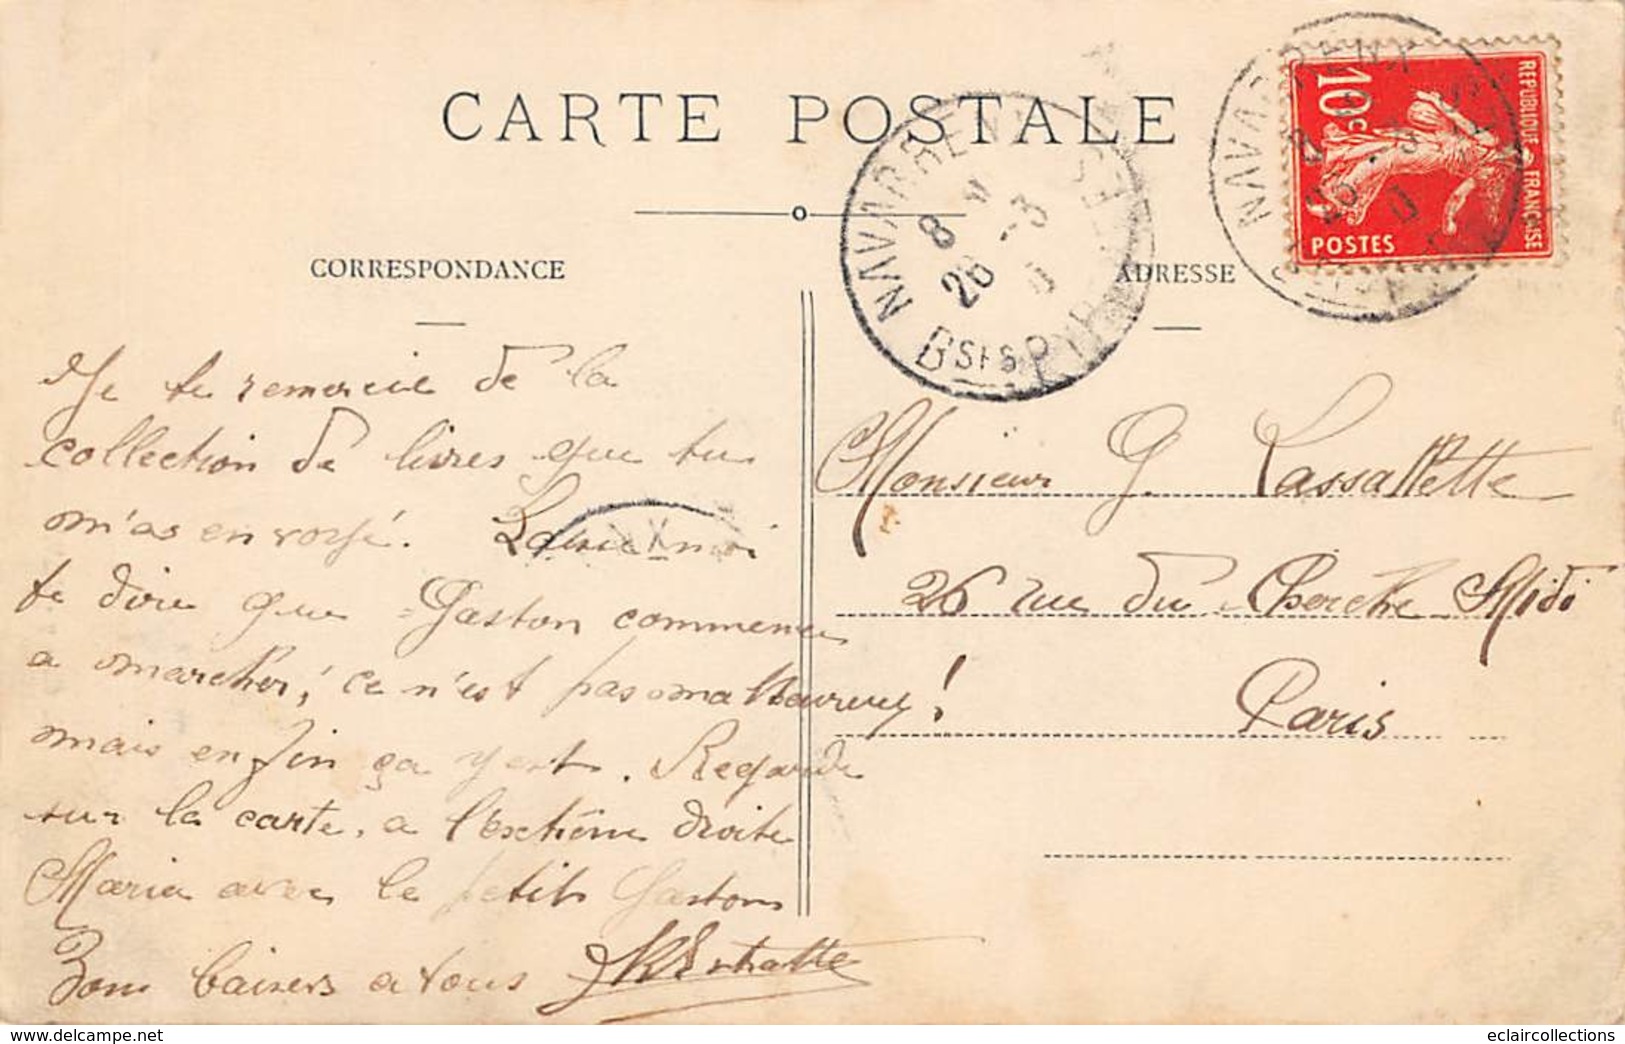 CARTE POSTALE
CORRESPONDANCE
ADRESSE
REPUBLIQUE FRANÇAISE
10c
POSTES
NAVARRENX
8
26 -3
BSES PYRÉNÉES
Je te remercie de la
collection de livres que tu
m'as envoyé. Laisse moi
te dire que Gaston commence
a marcher, ce n'est pas malheureux!
mais enfin ça y est. Regarde
sur la carte, a l'extrême droite
Maria avec le petit Gaston
Bons baisers a tous
Monsieur G. Lassallette
26 rue du Cherche Midi
Paris
eclaircollections